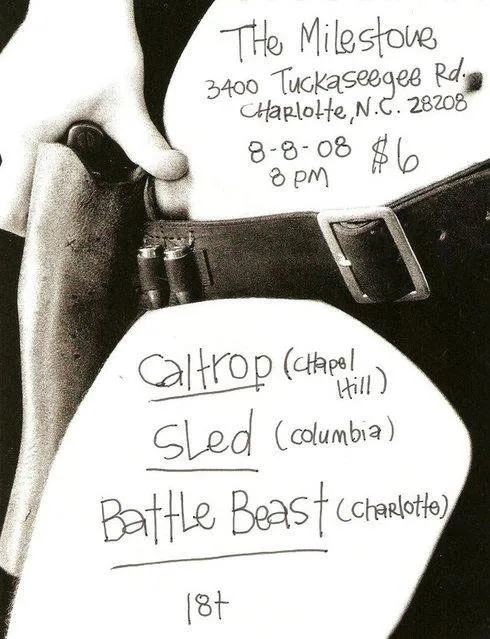 The Milestone
3400 Tuckaseegee Rd.
Charlotte, N.C. 28208
8-8-08 $6
8 PM
Caltrop (Chapel
Hill)
Sled (Columbia)
Battle Beast (Charlotte)
18+